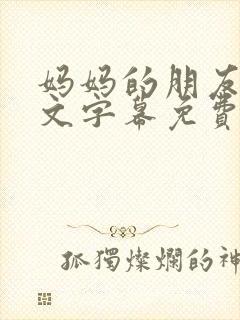 妈妈的朋友
文字幕免費
孤獨燦爛的神